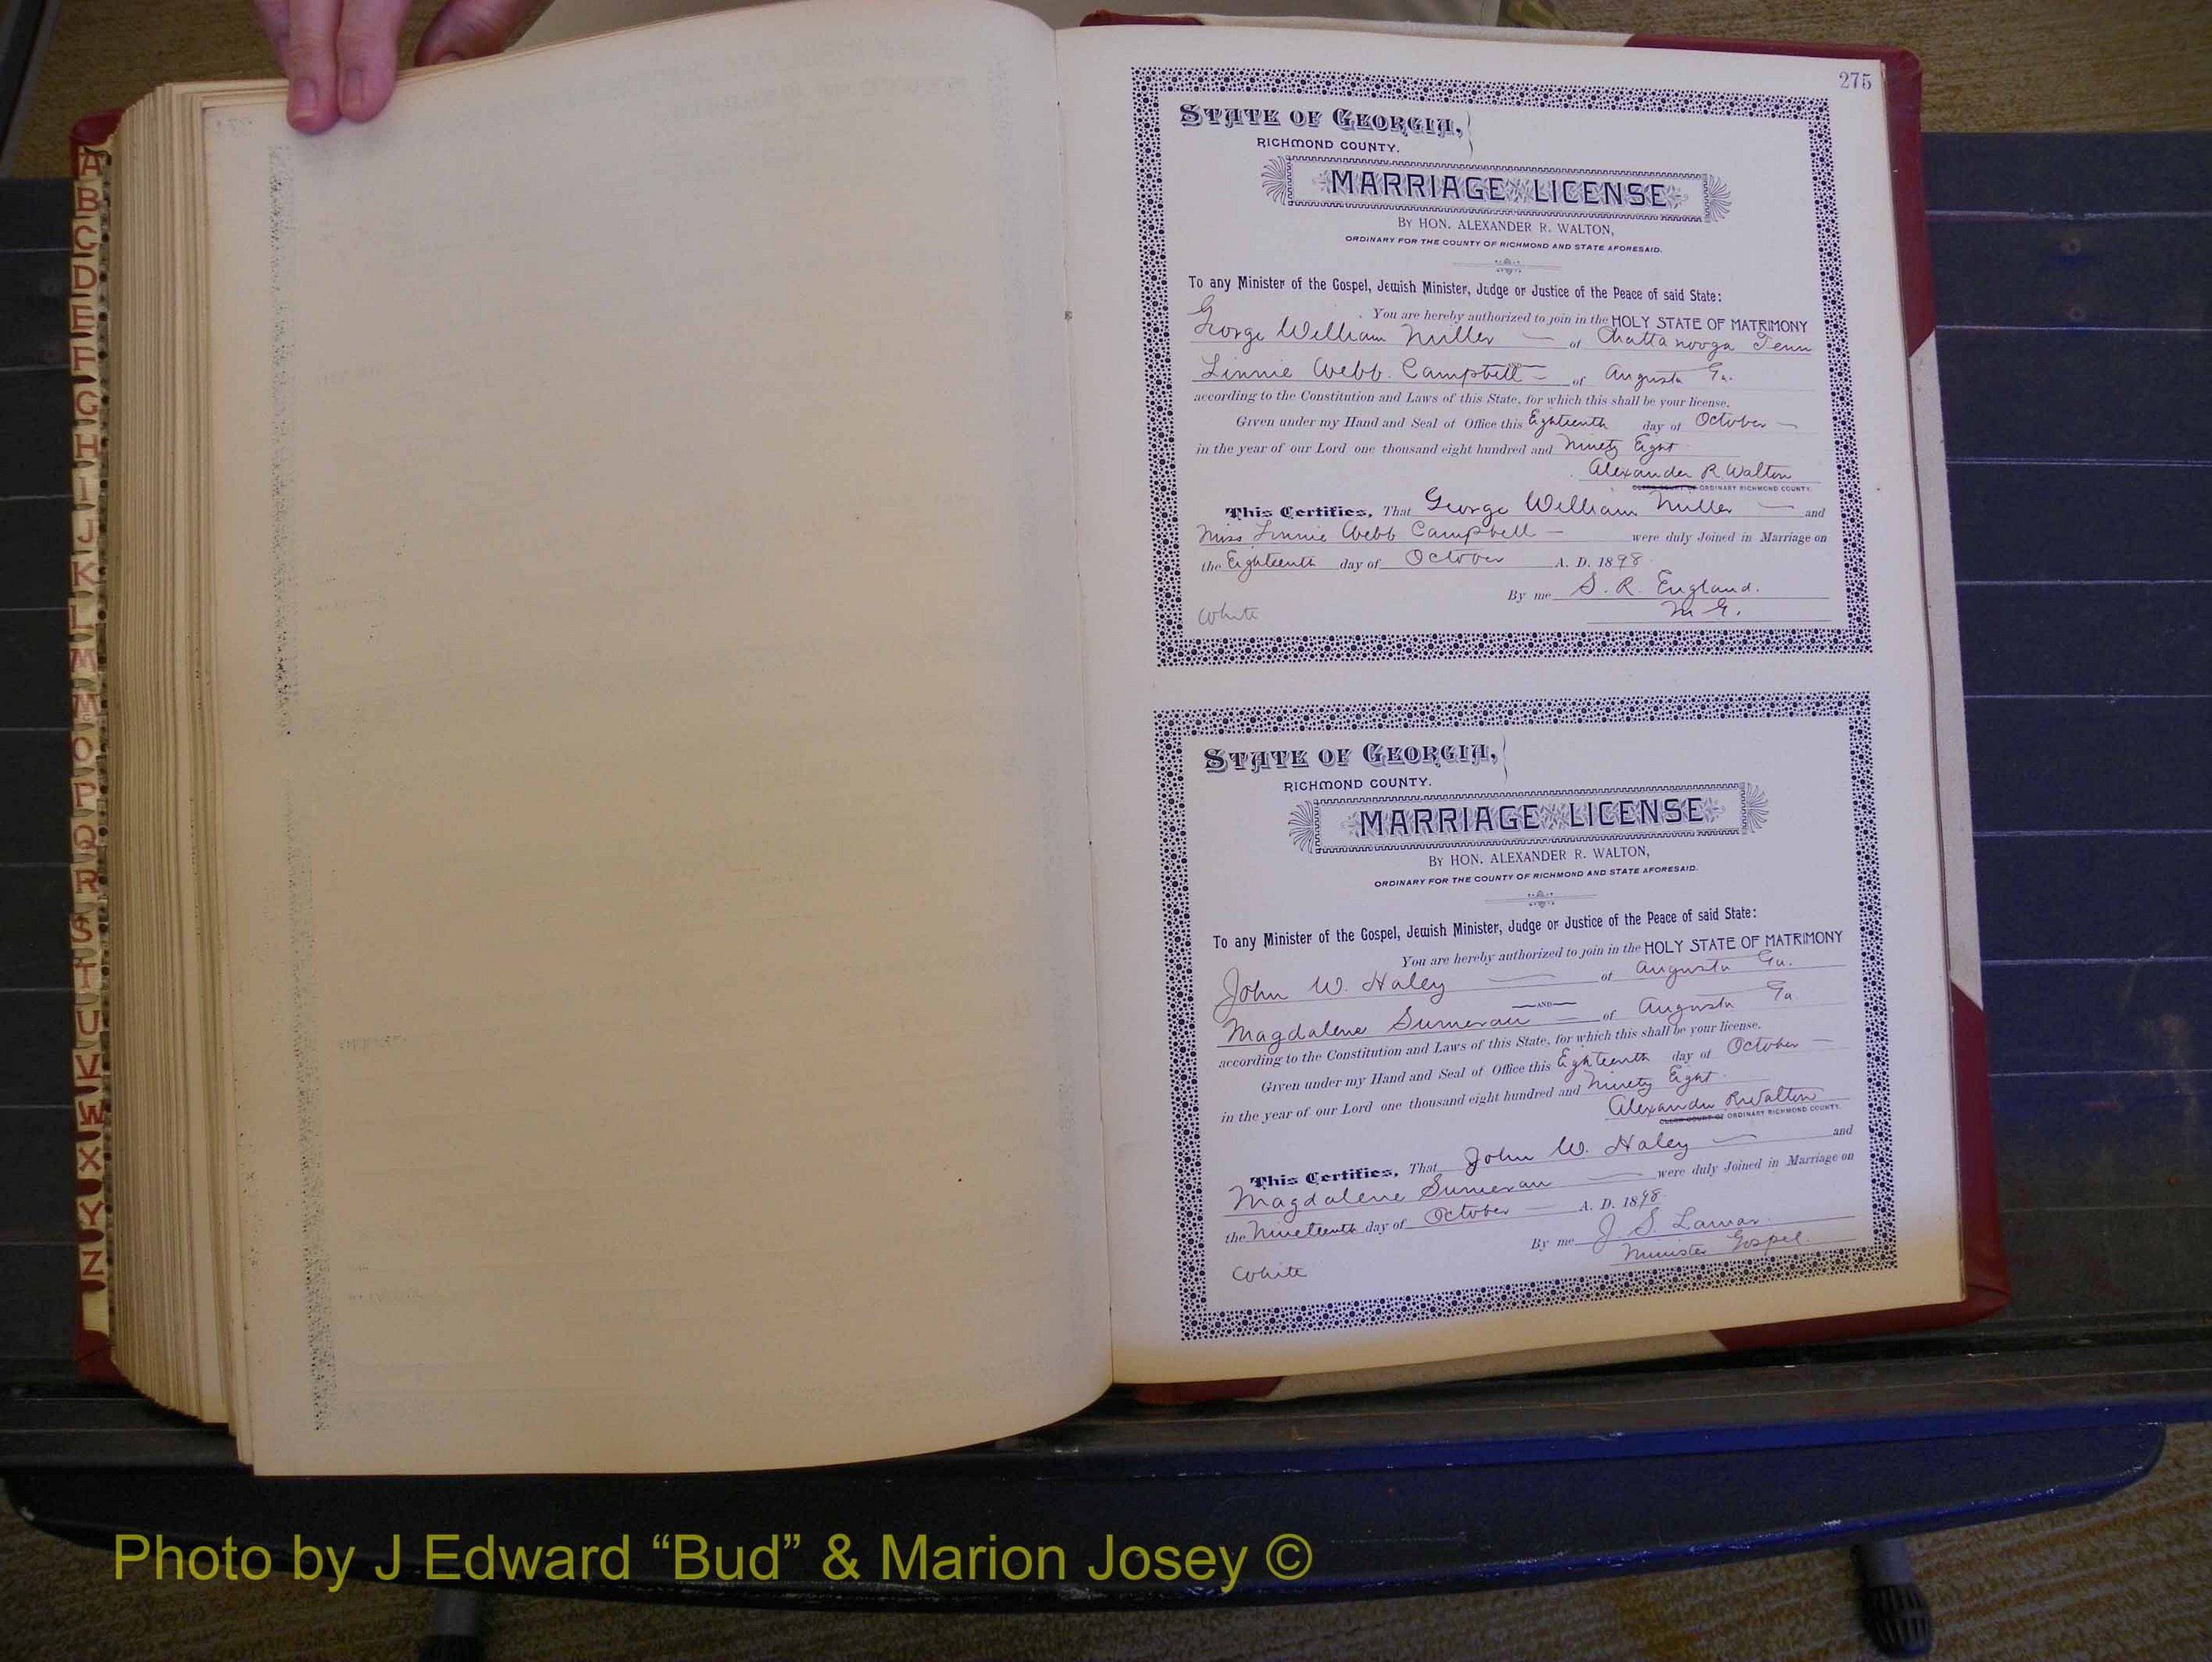 275
STATE OF GEORGIA,
RICHMOND COUNTY.
MARRIAGE LICENSE
BY HON. ALEXANDER R. WALTON,
ORDINARY FOR THE COUNTY OF RICHMOND AND STATE AFORESAID.
To any Minister of the Gospel, Jewish Minister, Judge or Justice of the Peace of said State:
You are hereby authorized to join in the HOLY STATE OF MATRIMONY
George William Miller — of Chattanooga Tenn
Linnie Webb Campbell — of Augusta Ga.
according to the Constitution and Laws of this State, for which this shall be your license.
Given under my Hand and Seal of Office this Eighteenth day of October —
in the year of our Lord one thousand eight hundred and Ninety Eight
Alexander R. Walton
CLERK COURT OF ORDINARY RICHMOND COUNTY.
This Certifies, That George William Miller — and
Miss Linnie Webb Campbell — were duly Joined in Marriage on
the Eighteenth day of October A. D. 1898.
By me S. R. England.
M. G.
White
STATE OF GEORGIA,
RICHMOND COUNTY.
MARRIAGE LICENSE
BY HON. ALEXANDER R. WALTON,
ORDINARY FOR THE COUNTY OF RICHMOND AND STATE AFORESAID.
To any Minister of the Gospel, Jewish Minister, Judge or Justice of the Peace of said State:
You are hereby authorized to join in the HOLY STATE OF MATRIMONY
John W. Haley — of Augusta Ga.
—AND—
Magdalene Sumerau — of Augusta Ga
according to the Constitution and Laws of this State, for which this shall be your license.
Given under my Hand and Seal of Office this Eighteenth day of October —
in the year of our Lord one thousand eight hundred and Ninety Eight
Alexander R Walton
CLERK COURT OF ORDINARY RICHMOND COUNTY.
This Certifies, That John W. Haley — and
Magdalene Sumerau — were duly Joined in Marriage on
the Nineteenth day of October — A. D. 1898.
By me J. S. Lamar.
Minister Gospel.
White
A
B
C
D
E
F
G
H
I
J
K
L
M
Mc
O
P
Q
R
S
T
U
V
W
X
Y
Z
Photo by J Edward “Bud” & Marion Josey ©